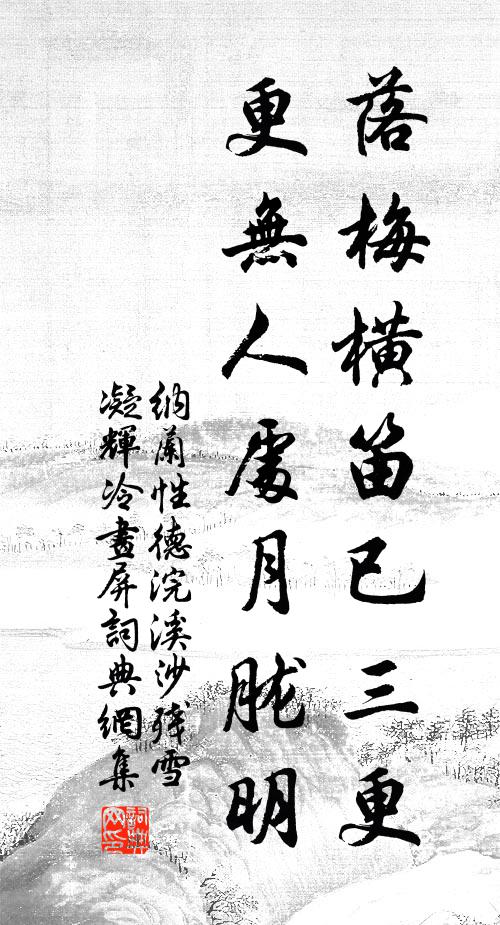 落梅橫笛已三更
更無人處月朧明
納蘭性德浣溪沙殘雪
凝輝冷畫屏詞典網集